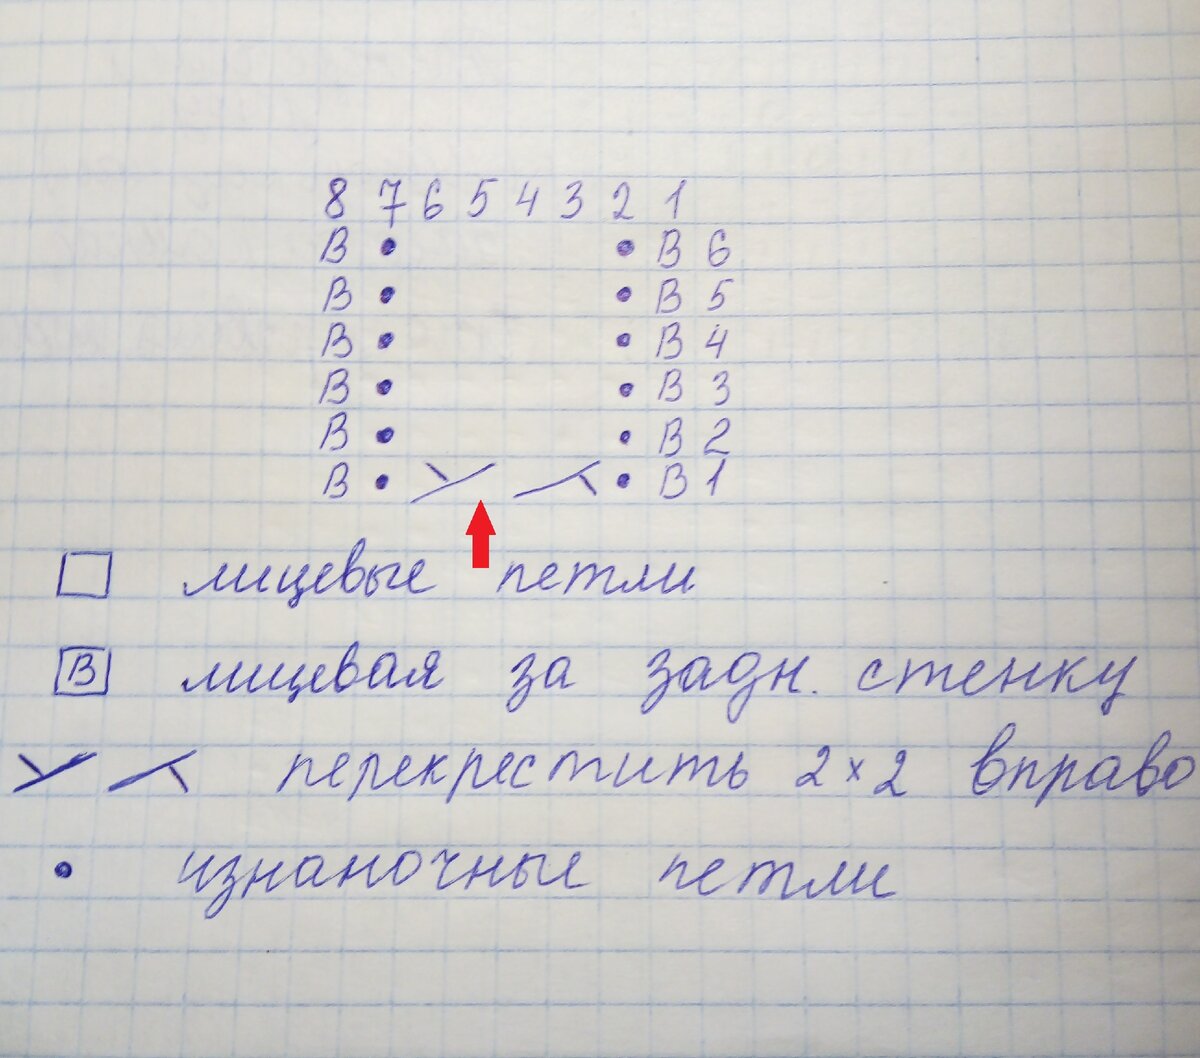 8 7 6 5 4 3 2 1
В • • В 6
В • • В 5
В • • В 4
В • • В 3
В • • В 2
В • • В 1
лицевые петли
В лицевая за задн. стенку
перекрестить 2×2 вправо
• изнаночные петли